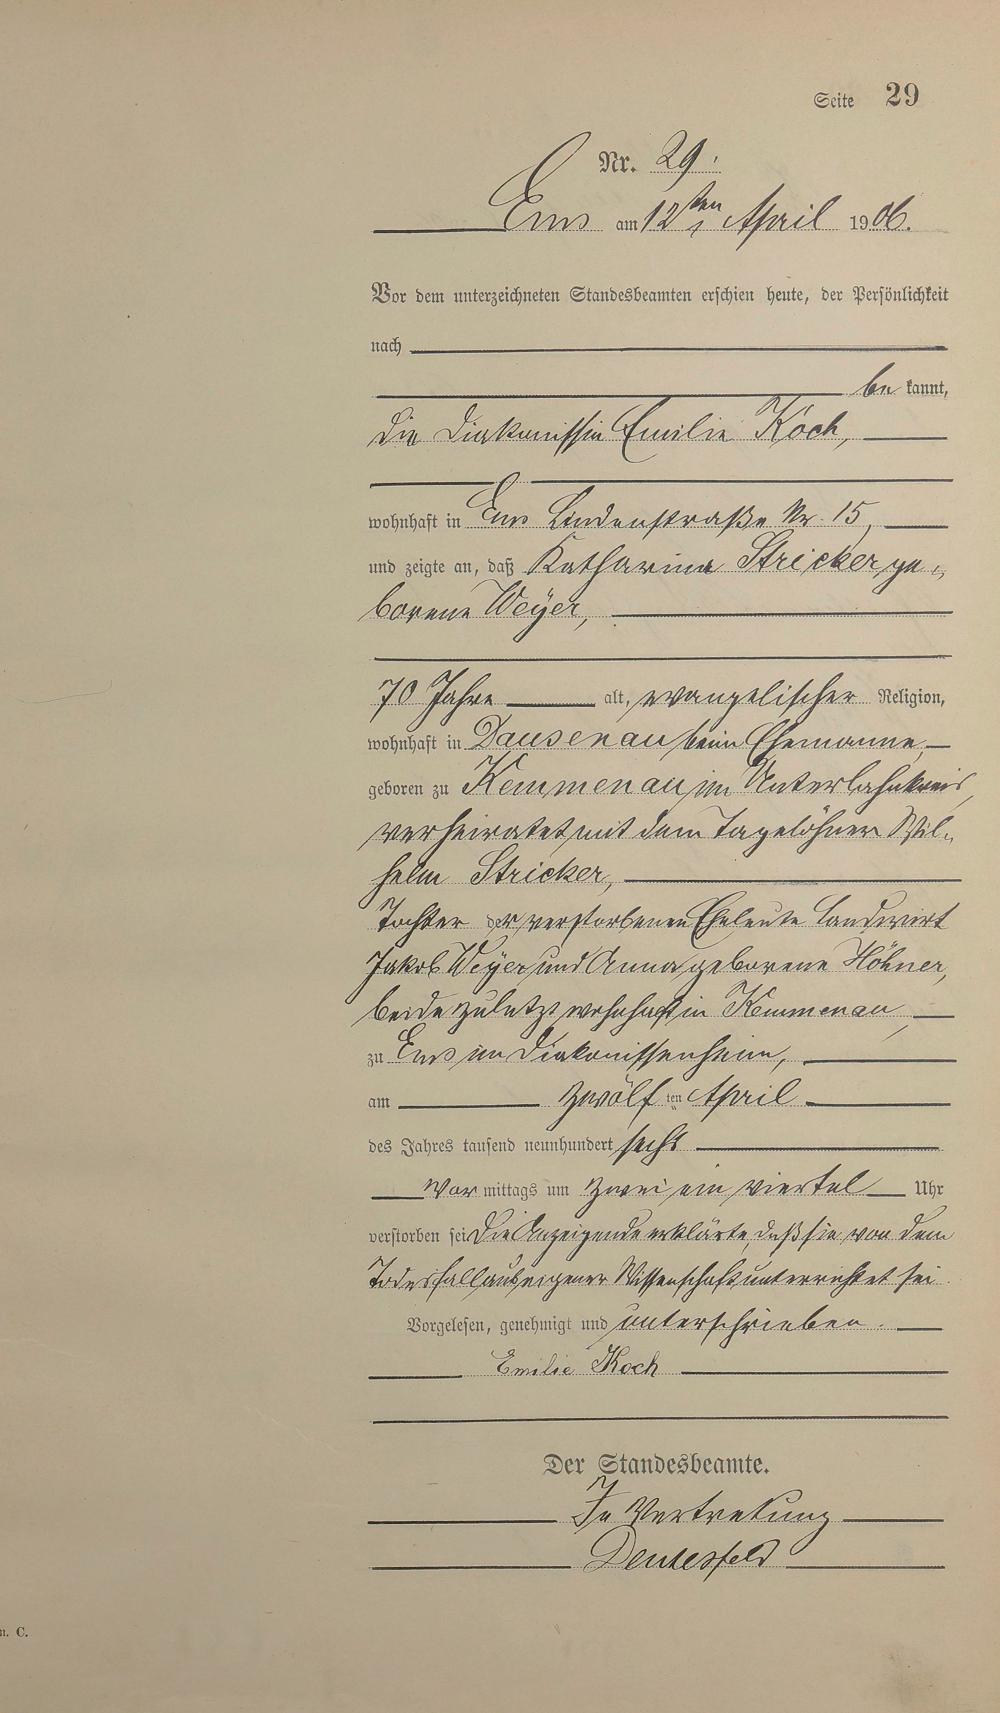 Seite 29
Nr. 29.
Ems am 12ten April 1906.
Vor dem unterzeichneten Standesbeamten erschien heute, der Persönlichkeit
nach
be kannt,
die Diakonissin Emilie Koch,
wohnhaft in Ems Lindenstraße Nr. 15,
und zeigte an, daß Katharina Stricker ge-
borene Weyer,
70 Jahre alt, evangelischer Religion,
wohnhaft in Dausenau beim Ehemanne,
geboren zu Kemmenau im Unterlahnkreis,
verheiratet mit dem Tagelöhner Wil-
helm Stricker,
Tochter der verstorbenen Eheleute Landwirt
Jakob Weyer und Anna geborene Höhner,
beide zuletzt wohnhaft in Kemmenau,
zu Ems im Diakonissenheim,
am zwölf ten April
des Jahres tausend neunhundert sechs
Vor mittags um zwei ein viertel Uhr
verstorben sei Die Anzeigende erklärte, daß sie von dem
Todesfall aus eigener Wissenschaft unterrichtet sei
Vorgelesen, genehmigt und unterschrieben.
Emilie Koch
Der Standesbeamte.
In Vertretung
n. C.